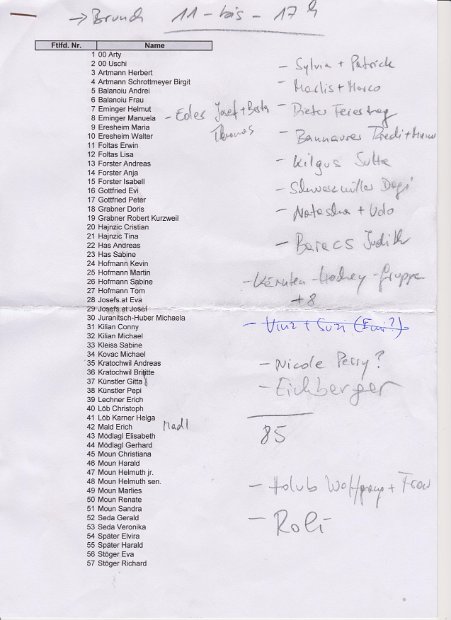 → Brunch 11 - bis - 17 h
Ftlfd. Nr. Name
1 00 Arty
2 00 Uschi
3 Artmann Herbert
4 Artmann Schrottmeyer Birgit
5 Balanoiu Andrei
6 Balanoiu Frau
7 Eminger Helmut
8 Eminger Manuela
9 Eresheim Maria
10 Eresheim Walter
11 Foltas Erwin
12 Foltas Lisa
13 Forster Andreas
14 Forster Anja
15 Forster Isabell
16 Gottfried Evi
17 Gottfried Peter
18 Grabner Doris
19 Grabner Robert Kurzweil
20 Hajnzic Cristian
21 Hajnzic Tina
22 Has Andreas
23 Has Sabine
24 Hofmann Kevin
25 Hofmann Martin
26 Hofmann Sabine
27 Hofmann Tom
28 Josefs at Eva
29 Josefs at Josef
30 Juranitsch-Huber Michaela
31 Kilian Conny
32 Kilian Michael
33 Kleiss Sabine
34 Kovac Michael
35 Kratochwil Andreas
36 Kratochwil Brigitte
37 Künstler Gitta
38 Künstler Pepi
39 Lechner Erich
40 Löb Christoph
41 Löb Karner Helga
42 Mald Erich Madl
43 Mödlagl Elisabeth
44 Mödlagl Gerhard
45 Moun Christiana
46 Moun Harald
47 Moun Helmuth jr.
48 Moun Helmuth sen.
49 Moun Marlies
50 Moun Renate
51 Moun Sandra
52 Seda Gerald
53 Seda Veronika
54 Später Elvira
55 Später Harald
56 Stöger Eva
57 Stöger Richard
- Eder Josef +
Thomas
- Sylvia + Patrick
- Marlis + Marco
- Dieter Feiertag
- Kilgus Jutta
- Natascha + Udo
- Baracs Judith
- Kärnten - - Gruppe
+8
- Vinz + Susi
- Nicole Perry?
- Eichberger
85
- Holub Wolfgang + Frau
- Roli